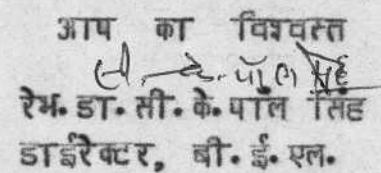 आप का विश्वस्त
सी. के. पॉल सिंह
रेभ. डा. सी. के. पाल सिंह
डाईरेक्टर, बी. ई. एल.